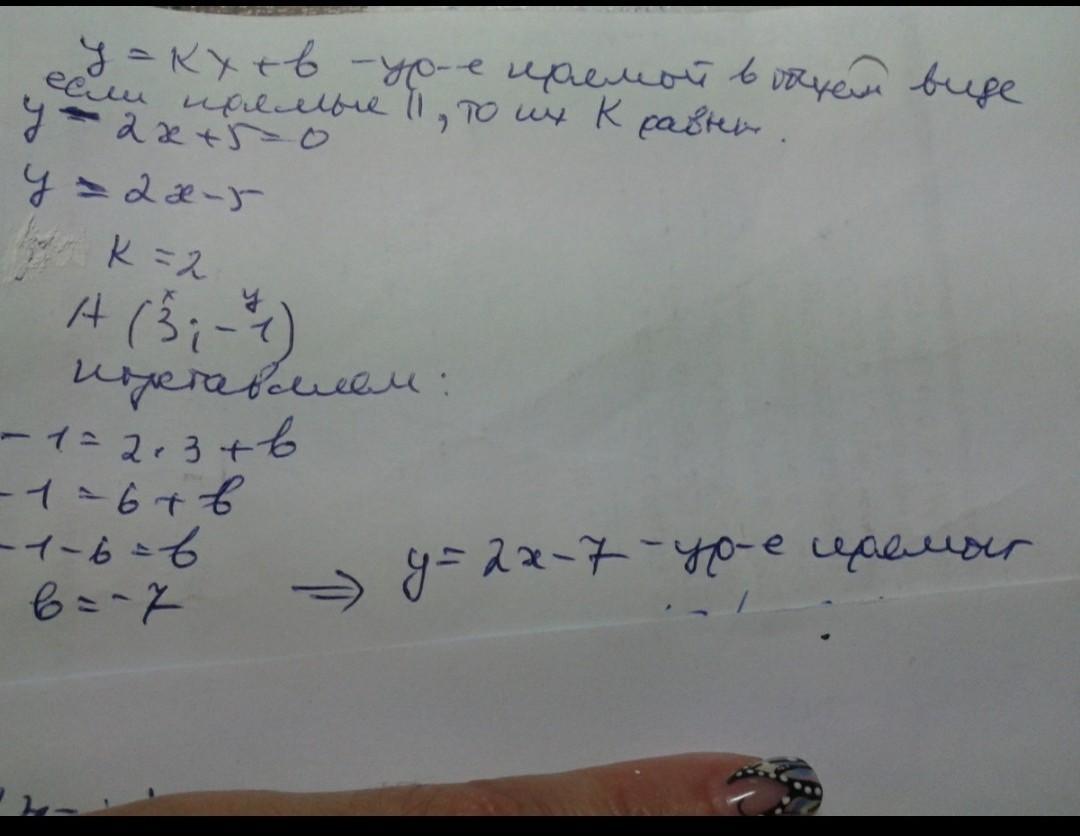 y = кx + в - ур-е прямой в общем виде
если прямые ||, то их К равны.
y - 2x + 5 = 0
y = 2x - 5
К = 2
x y
A (3; -1)
подставляем:
-1 = 2 · 3 + в
-1 = 6 + в
-1 - 6 = в
в = -7 ⇒ y = 2x - 7 - ур-е прямой